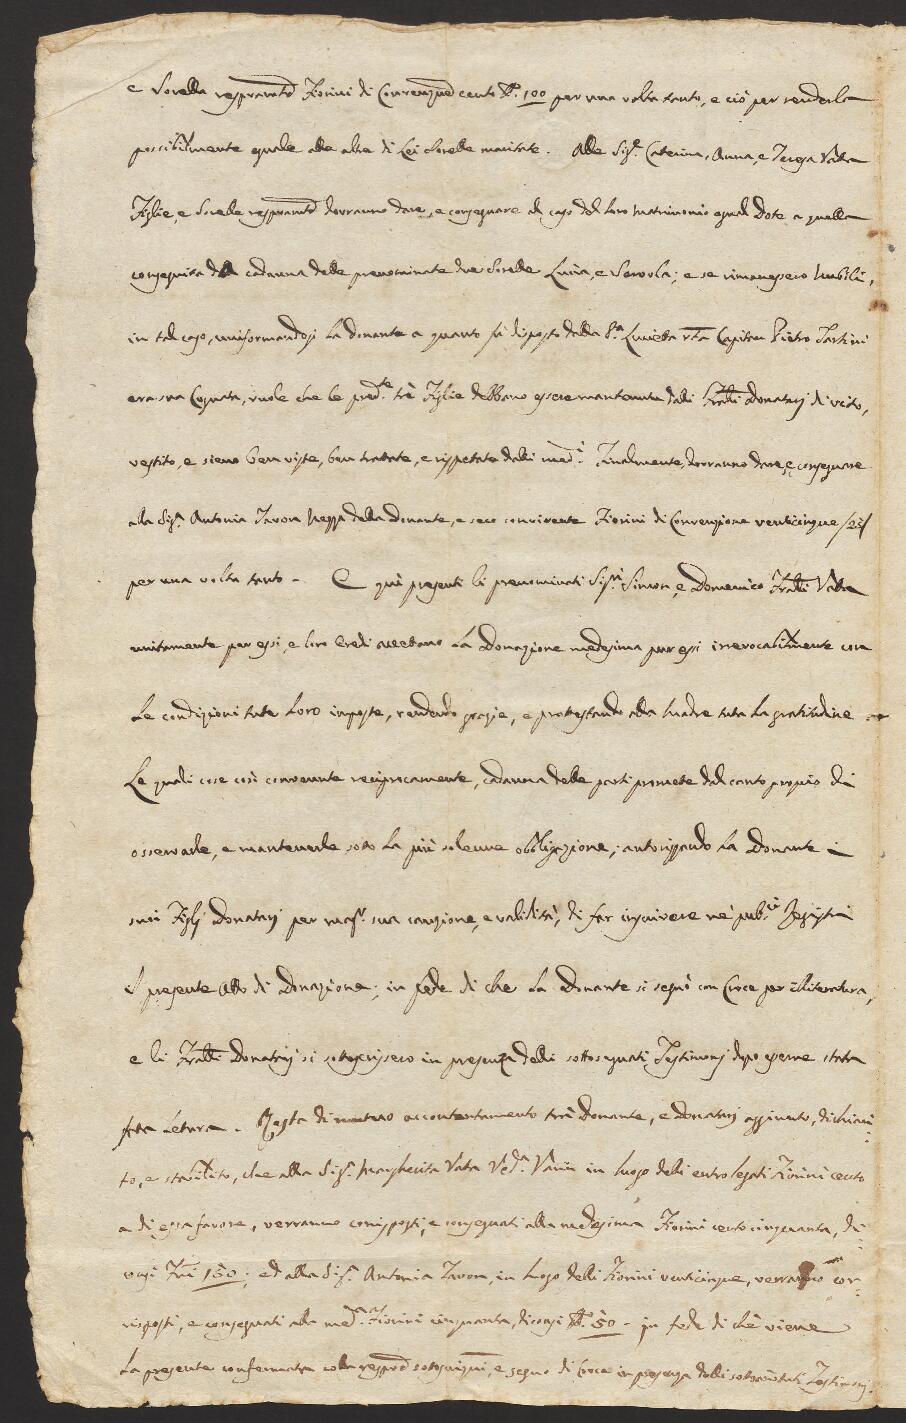 e Sorella respvamte Fiorini di Convenzne cento ff. 100 per una volta tanto, e ciò per renderla
possibilmente eguale alle altre di Lei Sorelle maritate. Alle Sigre Caterina, Anna, e Teresa Vatta
Figlie, e Sorelle respvamte dovranno dare, e consegnare al caso del loro matrimonio egual Dote a quella
conseguita da cadauna delle prenominate due Sorelle Lucia, e Servola; e se rimanessero Nubili,
in tal caso, uniformandosi la Donante a quanto fù disposto dalla Sa Luietta rta Capitan Pietro Tartini
era sua Cognata, vuole che le predte trè Figlie debbano essere mantenute dalli Fratelli Donatarj di vitto,
vestito, e sieno ben viste, ben trattate, e rispettate dalli medi. Finalmente, dovranno dare, e consegnare
alla Siga Antonia Zavora Nezza della Donante, e seco convivente Fiorini di Convenzione venticinque /25/
per una volta tanto -. E quì presenti li prenominati Sigri Simon, e Domenico Frelli Vatta
unitamente per essi, e loro Eredi accettano la Donazione medesima per essi irrevocabilmente con
le condizioni tutte loro imposte, rendendo grazie, e protestando alla Madre tutta la gratitudine
Le quali cose così convenute reciprocamente, cadauna delle parti promette dal canto proprio di
osservarle, e mantenerle sotto la più solenne obbligazione; autorizzando la Donante i
suoi Figlj Donatarj per magr. sua cauzione, e validità, di far inscrivere ne' pubci Registri
il presente Atto di Donazione; in fede di che la Donante si segnò con Croce per illiteratura,
e li Frelli Donatarj si sottoscrissero in presenza delli sottosegnati Testimonj dopo esserne stata
fatta Lettura. Resta di mutuo accontentamento trà Donante, e Donatarj aggiunto, dichiara
to, e stabilito, che alla Siga Margherita Vatta Veda Vanin in luogo delli entro legati Fiorini cento
a di essa favore, verranno corrisposti, e consegnati alla medesima Fiorini cento cinquanta, di
consi Fni 150; ed alla Siga Antonia Zavora, in luogo delli Fiorini venticinque, verranno cor
risposti, e consegnati alla meda Fiorini cinquanta, diconsi ff. 50 - in fede di chè viene
la presente confermata colle respve sottoscrizni, e segno di Croce in presenza delli sottoscritti Testimonj.